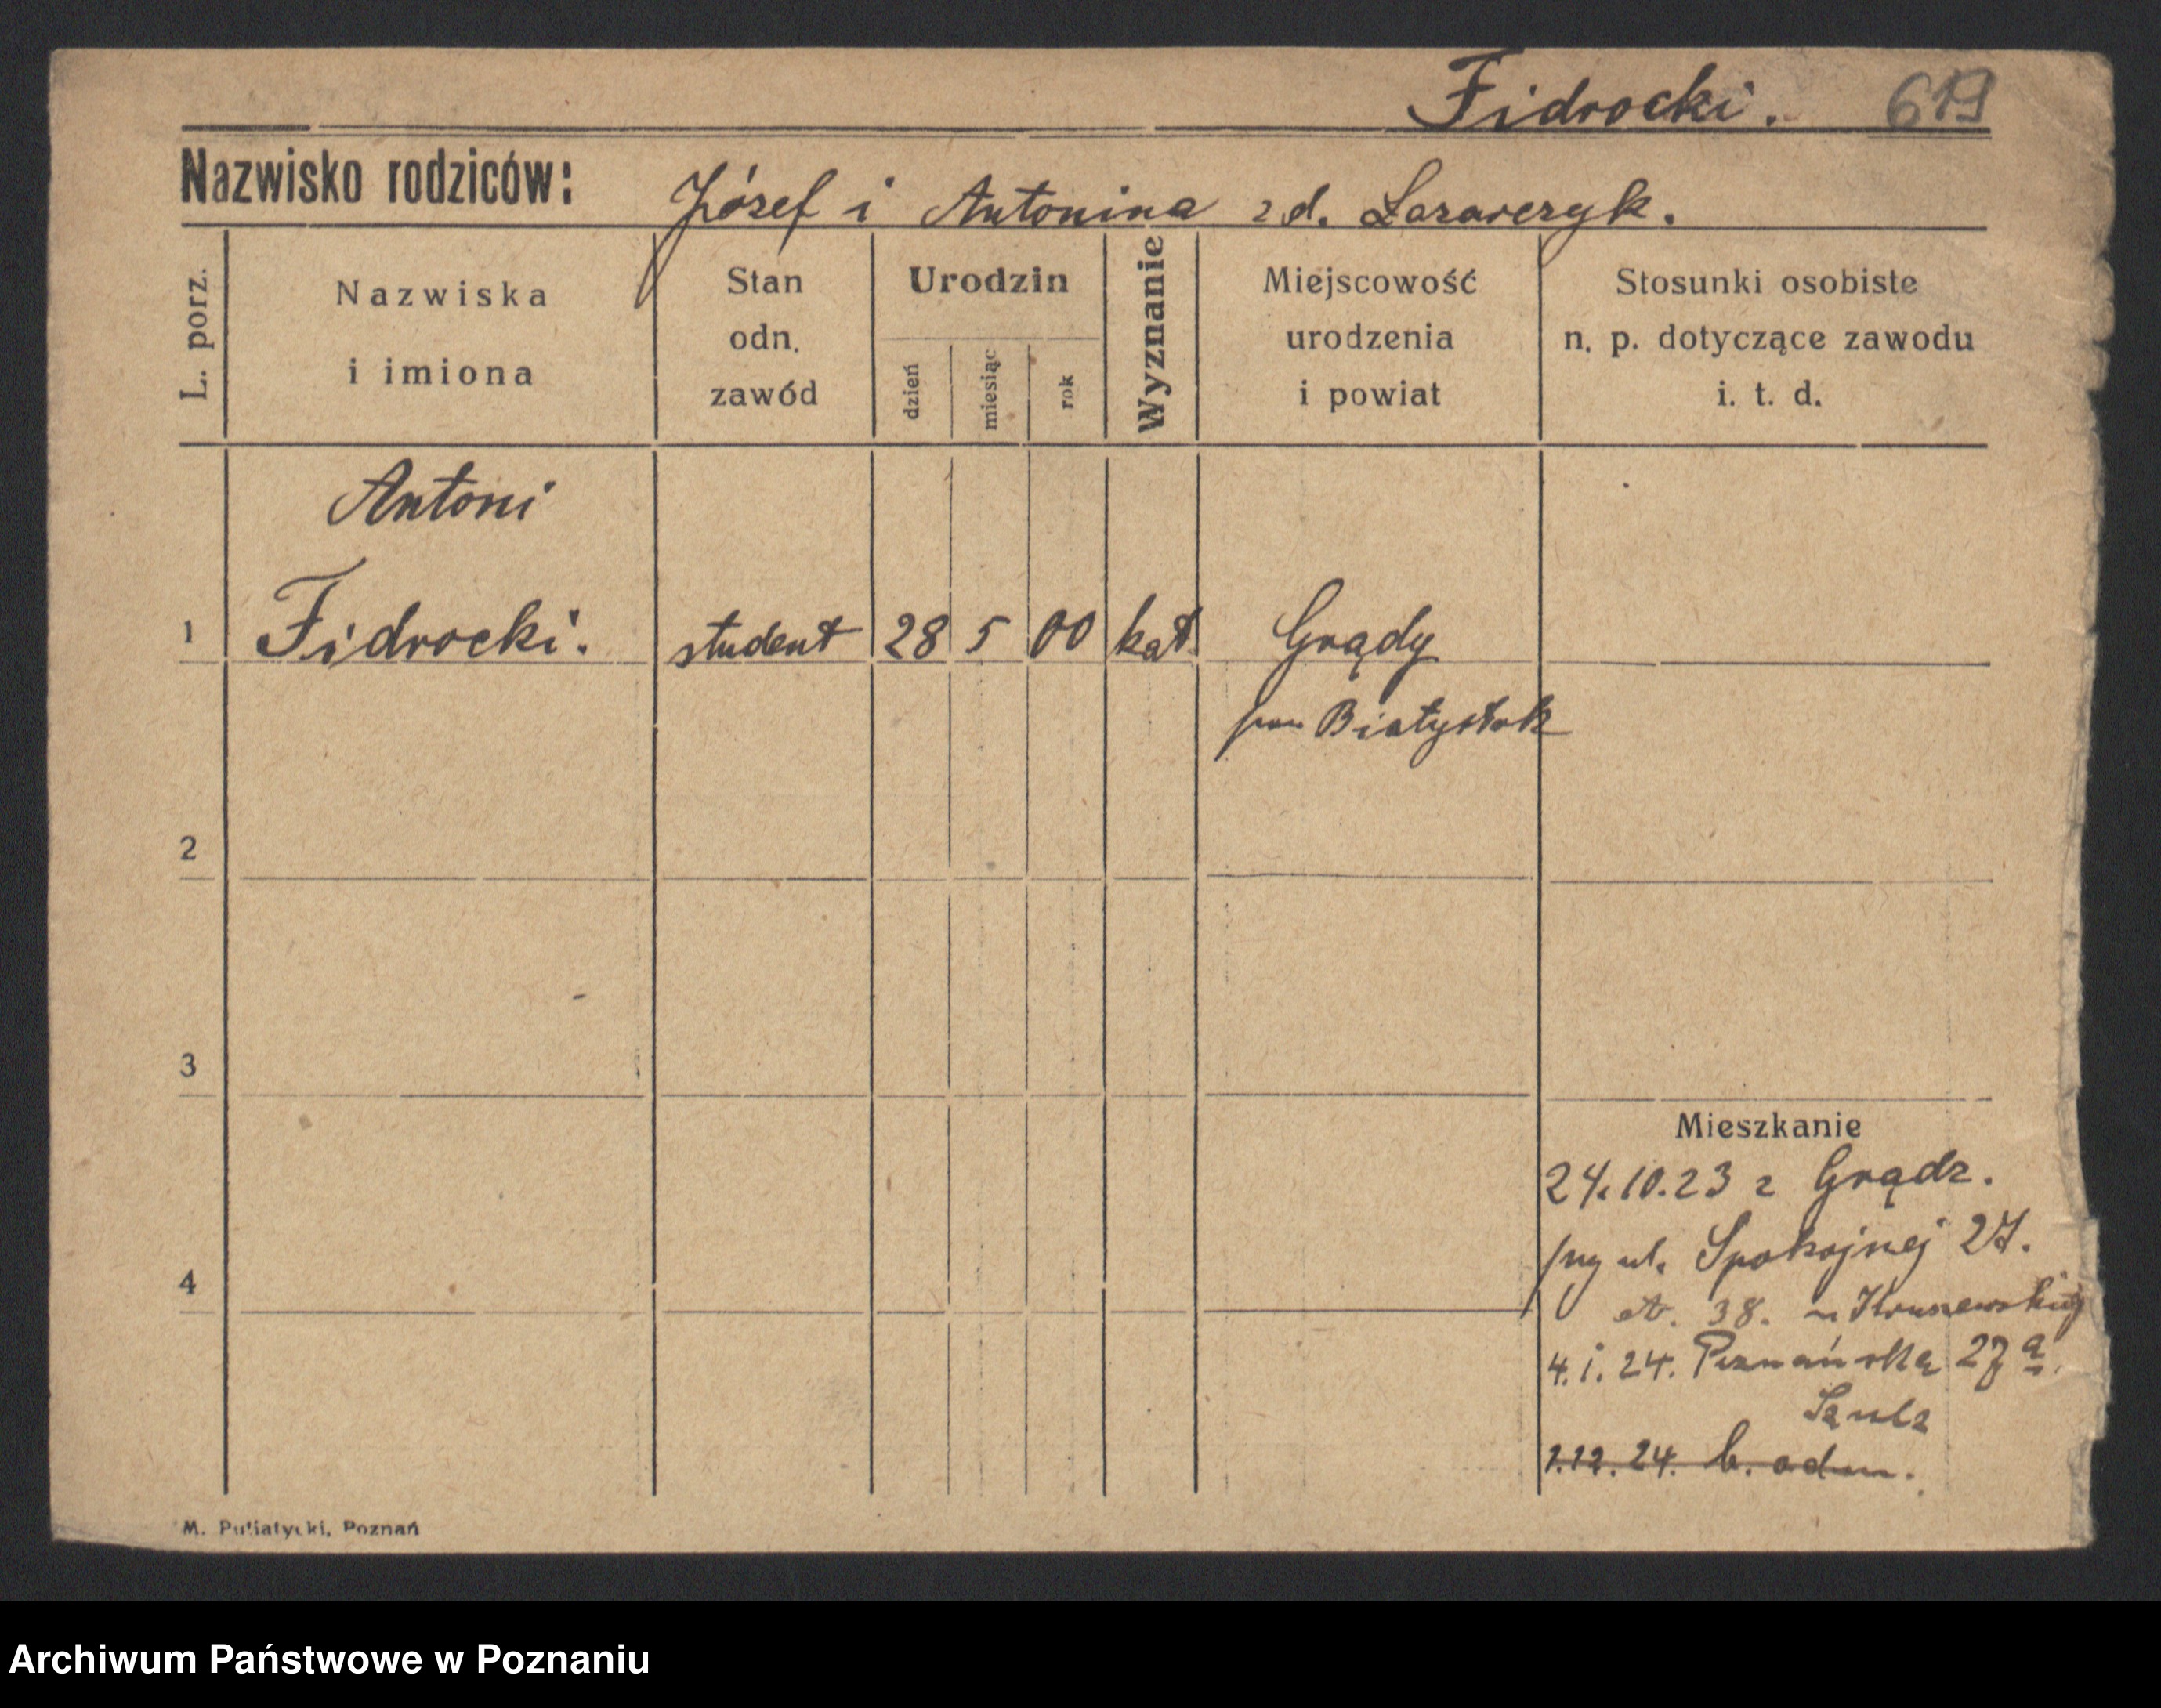 Fidrocki. 619
Nazwisko rodziców: Józef i Antonina z d. Lazarczyk.
L. porz.
Nazwiska
i imiona
Stan
odn.
zawód
Urodzin
dzień
miesiąc
rok
Wyznanie
Miejscowość
urodzenia
i powiat
Stosunki osobiste
n. p. dotyczące zawodu
i. t. d.
Antoni
1 Fidrocki. student 28 5 00 kat. Grądy
pow Białystok
2
3
Mieszkanie
24.10.23 z Grądz.
ul. Spokojnej 27.
4
38.
4. 1. 24. Poznańska 27 a.
1.12. 24. b. adm.
M. Putiatycki, Poznań
Archiwum Państwowe w Poznaniu